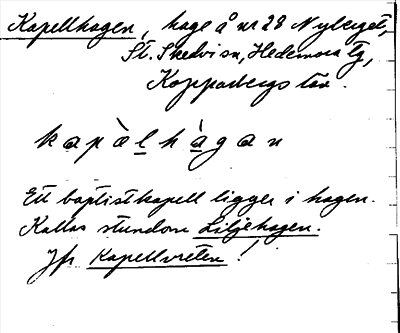 Kapellhagen, hage å nr 28 Nyberget,
St. Skedvi sn, Hedemora tg,
Kopparbergs län.
kapæ̀lhàgan
Ett baptistkapell ligger i hagen.
Kallas stundom Liljehagen.
Jfr Kapellvreten!